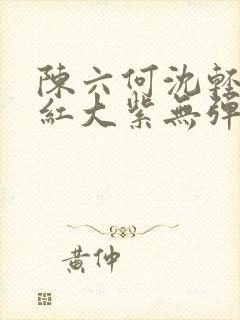 陳六何沈輕
紅大紫無彈
黃仲